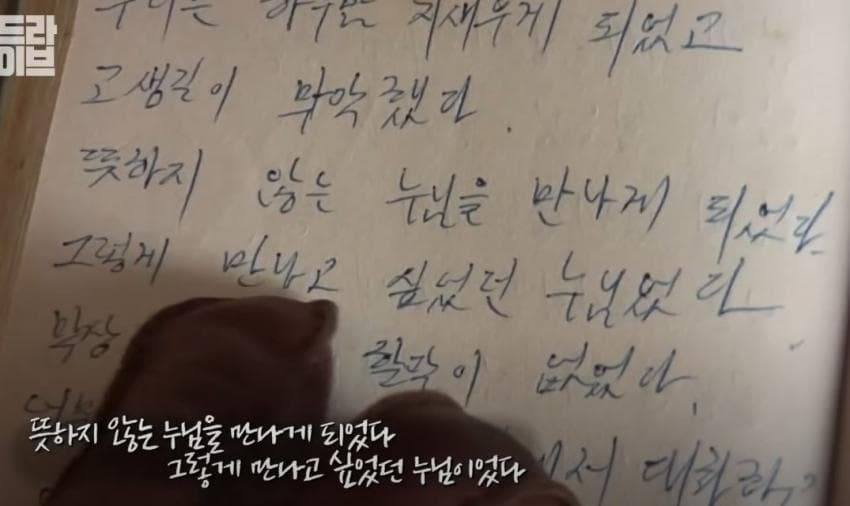 드라
이브
우리는 하루밤 지새우게 되었고
고생길이 막약했다.
뜻하지 않는 누님을 만나게 되었다.
그렇게 만나고 싶었던 누님었다.
막장
없었다.
대화하
뜻하지 않는 누님을 만나게 되었다
그렇게 만나고 싶었던 누님이었다